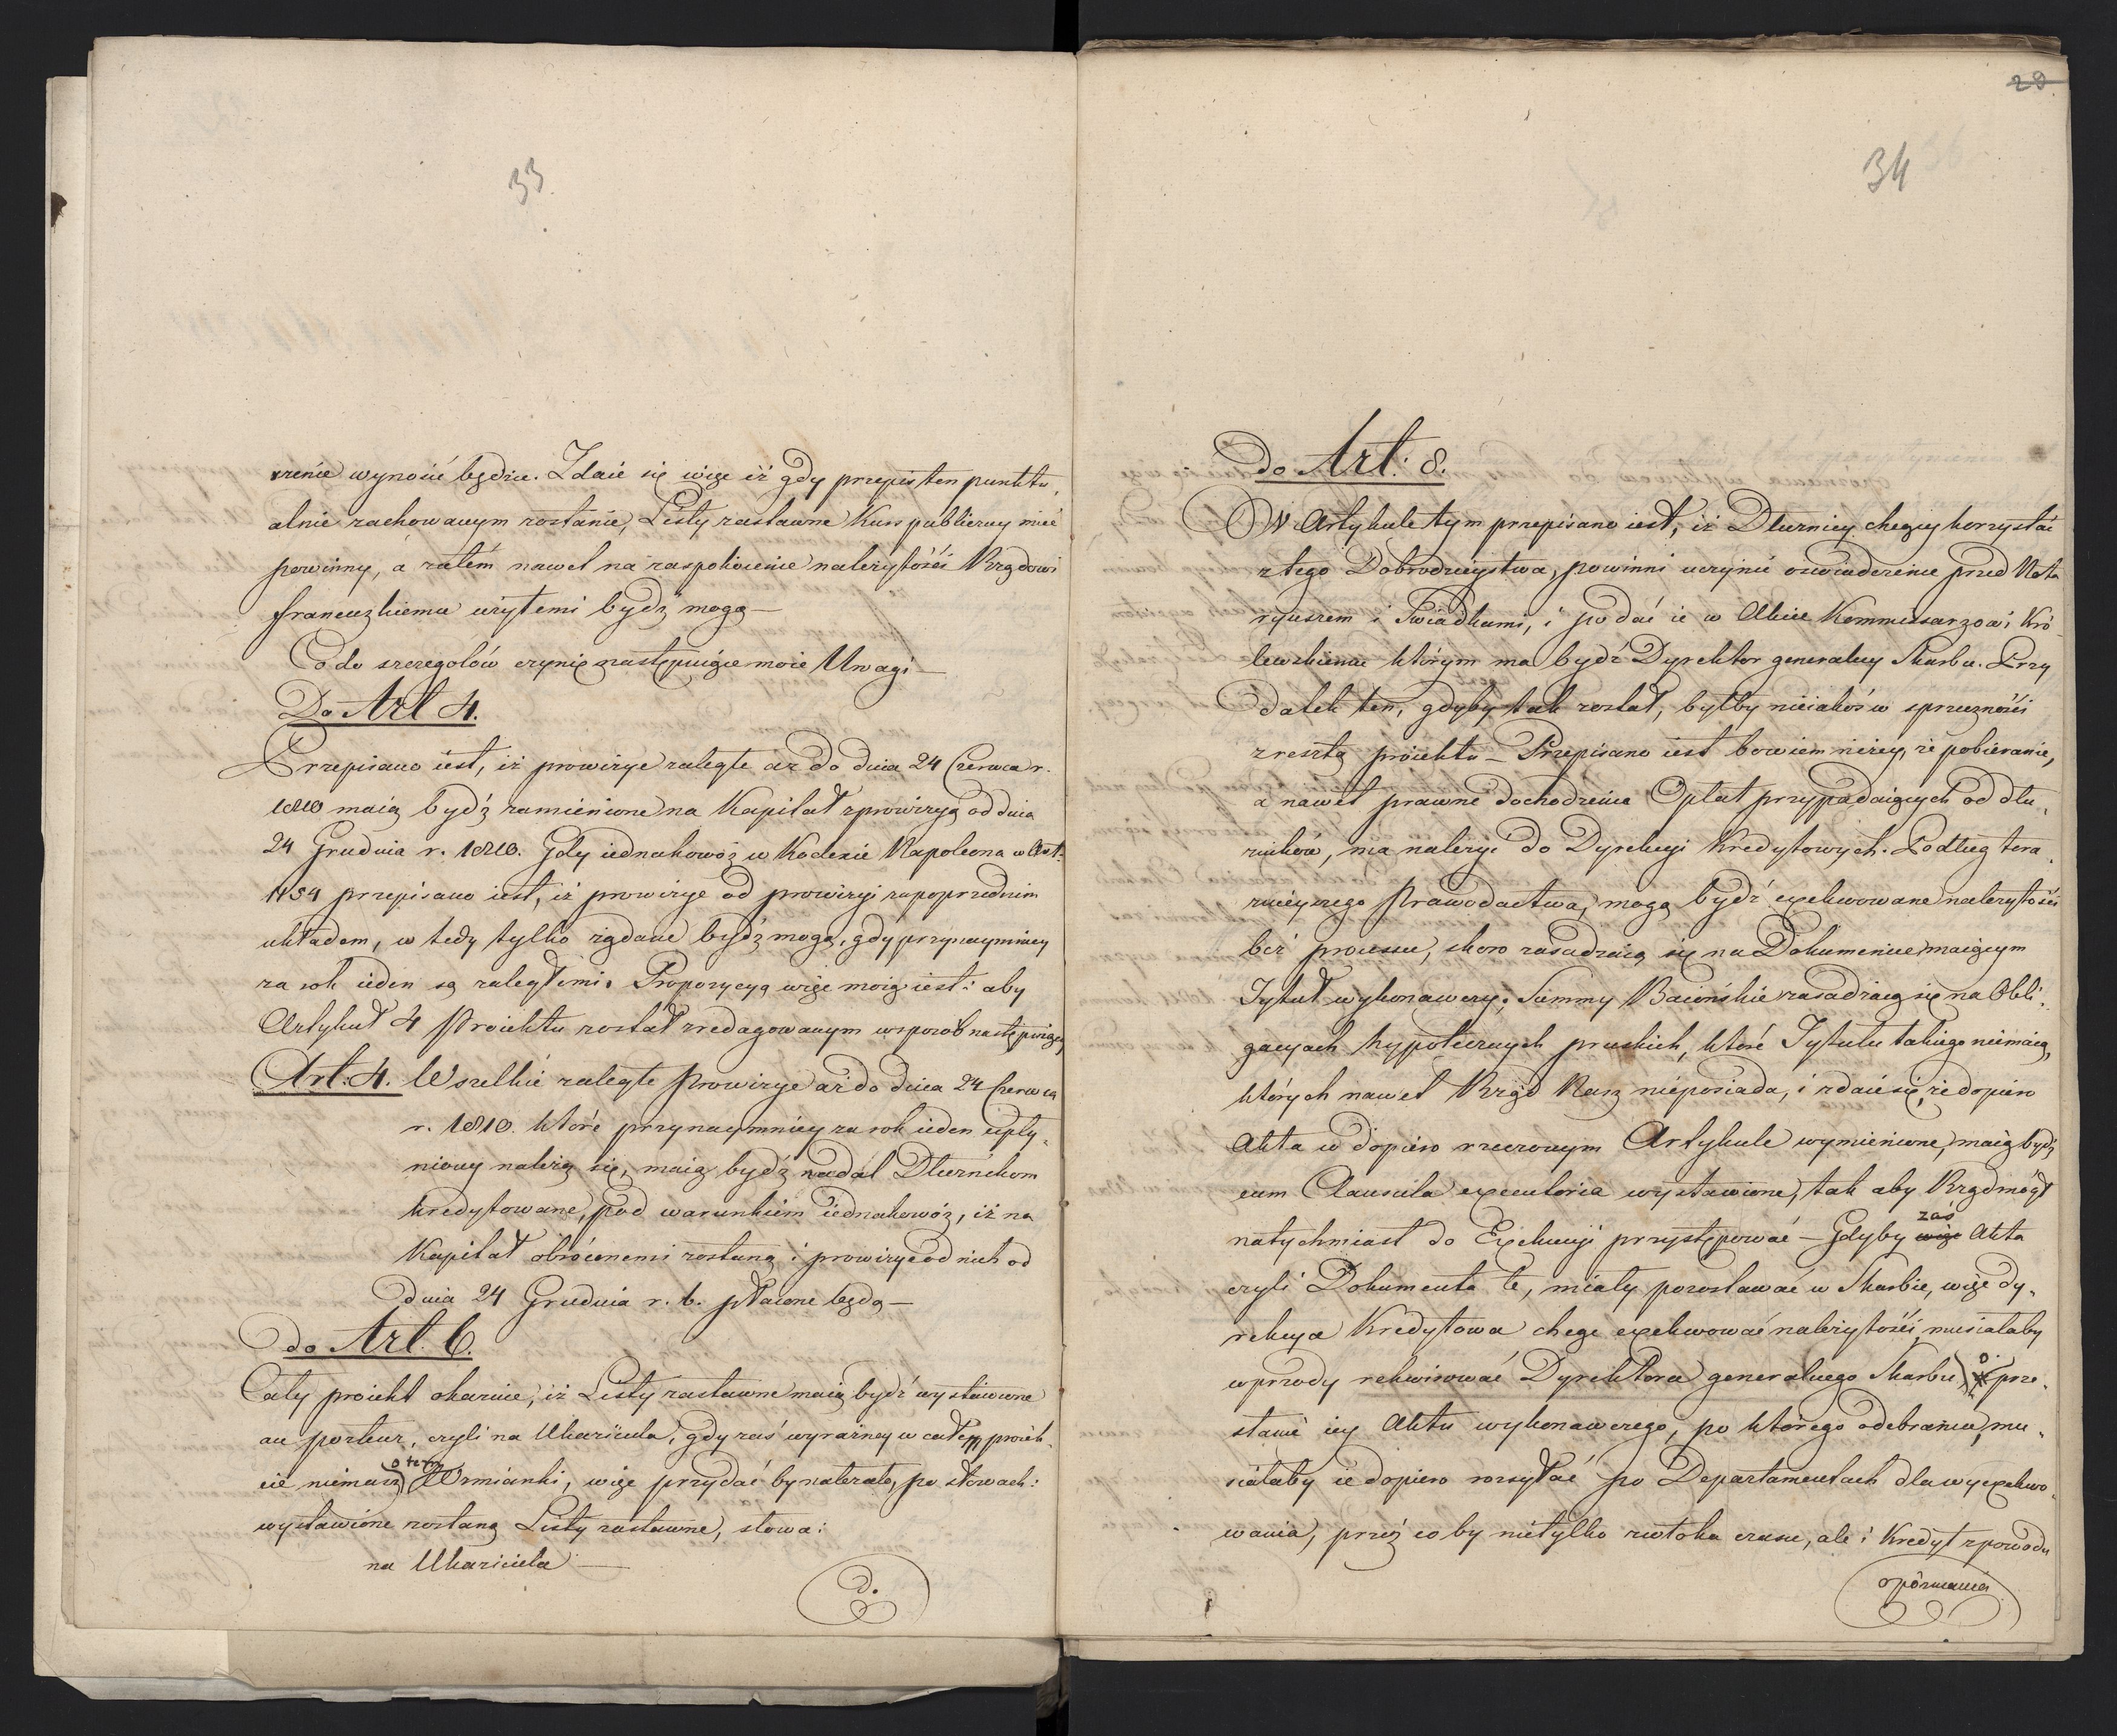 33.
wnie wynosić będzie. Zdaie się więc iż gdy przepis ten punktu,
alnie zachowanym zostanie, Listy zastawne Kurs publiczny mieć
powinny, a zatém nawet na zaspokoienie należytości Rządowi
francuzkiemu użytemi bydź mogą —
Co do szczegolów czynię następuiące moie Uwagi —
Do Art 4.
Przepisano iest, iż prowizye zaległe aż do dnia 24 Czerwca r.
1810 maią bydź zamienione na Kapitał z prowizyą od dnia
24 Grudnia r. 1810. Gdy iednakowóż w Kodexie Napoleona w Art:
1154 przepisano iest, iż prowizye od prowizyi za poprzednim
układem, w tedy tylko żądane bydź mogą, gdy przynaymniey
za rok ieden są zaległemi. Propozycyą więc moią iest: aby
Artykuł 4 Proiektu został zredagowanym w sposób następuiący
Art: 4. Wszelkie zaległe Prowizye aż do dnia 24 Czerwca
r. 1810. które przynaymniey za rok ieden upły„
niony należą się, maią bydź nadal Dłużnikom
kredytowane, pod warunkiem iednakowóż, iż na
Kapitał obróconemi zostaną i prowizye od nich od
dnia 24 Grudnia r. b. płacone będą —
do Art. 6.
Cały proiekt okazuie, iż Listy zastawne maią bydź wystawione
au porteur, czyli na Ukaziciela, gdy zaś wyraźney w całym proiek„
cie niemasz o tem Wzmianki, więc przydać by należało, po słowach:
wystawione zostaną Listy zastawne, słowa:
na Ukaziciela —
d.
28
34 36
do Art: 8.
W Artykule tym przepisano iest, iż Dłużnicy chcący korzystać
z tego Dobrodzieystwa, powinni uczynić oświadczenie przed Nota
ryuszem i Swiadkami, i podać ie w Akcie Kommissarzowi Kró„
lewskiemu którym ma bydź Dyrektor generalny Skarbu. Przy
datek ten, gdyby tak został, byłby nieiakoś w sprzeczności
z resztą proiektu — Przepisano iest bowiem niżey, że pobieranie,
a nawet prawne dochodzenie Opłat przypadaiących od dłu„
żników, ma należyć do Dyrekcyi Kredytowych. Podług tera„
źnieyszego Prawodactwa, mogą bydź exekwowane należytości
bez processu, skoro zasadzaią się na Dokumencie maiącym
Tytuł wykonawczy; Summy Baiońskie zasadzaią się na Obli„
gacyach hypotecznych pruskich, które Tytułu takiego niemaią,
których nawet Rząd Nasz nieposiada, i zdaie się, że dopiero
Akta w dopiero rzeczonym Artykule wymienione, maią bydź
cum Clausula executoria wystawione, tak aby Rząd mógł
natychmiast do Exekucyi przystępować — Gdyby więc zaś Akta
czyli Dokumenta te, miały pozostawać w Skarbie, więc dy„
rekcya Kredytowa chcąc exekwować należytości, musiałaby
wprzody rekwirować Dyrektora generalnego Skarbu, o prze„
słanie iey Aktu wykonawczego, po którego odebraniu, mu„
siałaby ie dopiero rozsyłać po Departamentach dla wyexekwo„
wania, przez co by nietylko zwłoka czasu, ale i Kredyt z powodu
opóźniania